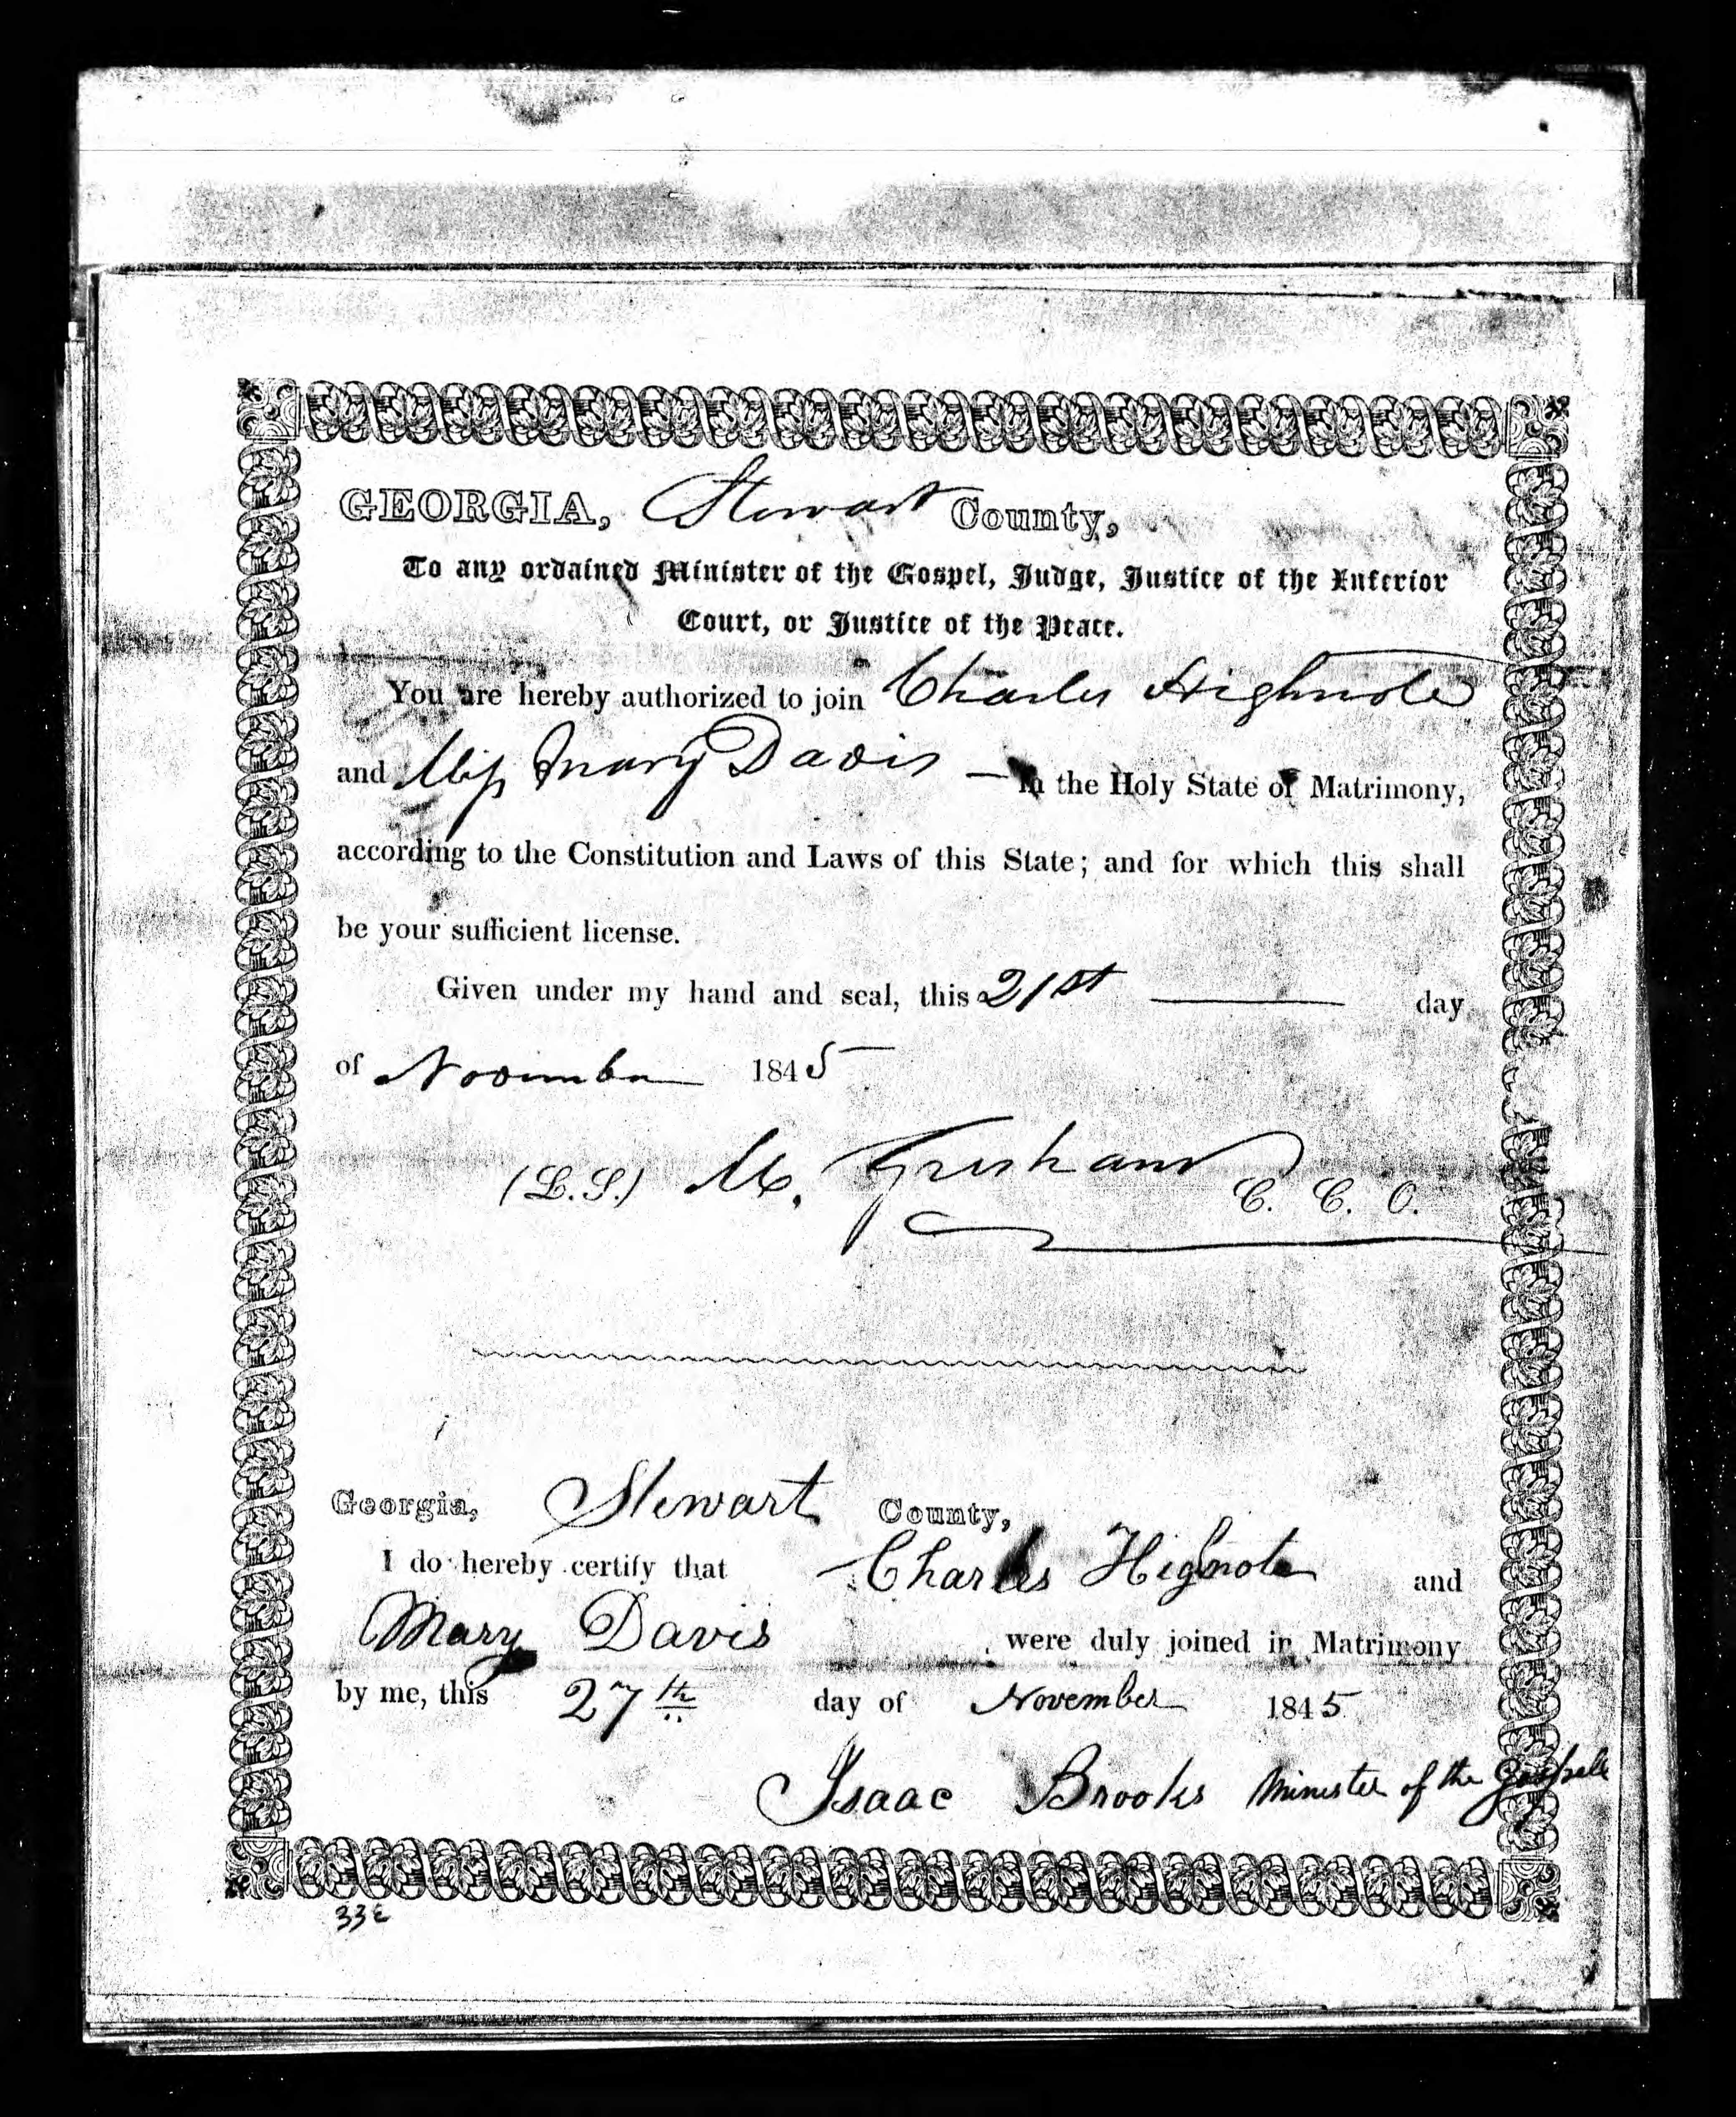 GEORGIA, Stewart County,
To any ordained Minister of the Gospel, Judge, Justice of the Inferior
Court, or Justice of the Peace.
You are hereby authorized to join Charles Highnote
and Miss Mary Davis — in the Holy State of Matrimony,
according to the Constitution and Laws of this State; and for which this shall
be your sufficient license.
Given under my hand and seal, this 21st — day
of November 1845
(L.S.) M. Gresham C. C. O.
Georgia, Stewart County,
I do hereby certify that Charles Hignote and
Mary Davis were duly joined in Matrimony
by me, this 27th day of November 1845
Isaac Brooks Minister of the Gospell